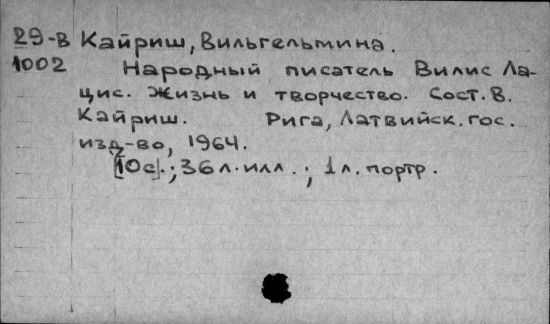 29-В Кайриш, Вильгельмина.
1002 Народный писатель Вилис Ла-
цис. Жизнь и творчество. Сост. В.
Кайриш. Рига, Латвийск. гос.
изд-во, 1964.
[10с].; 36 л. илл.; 1 л. портр.